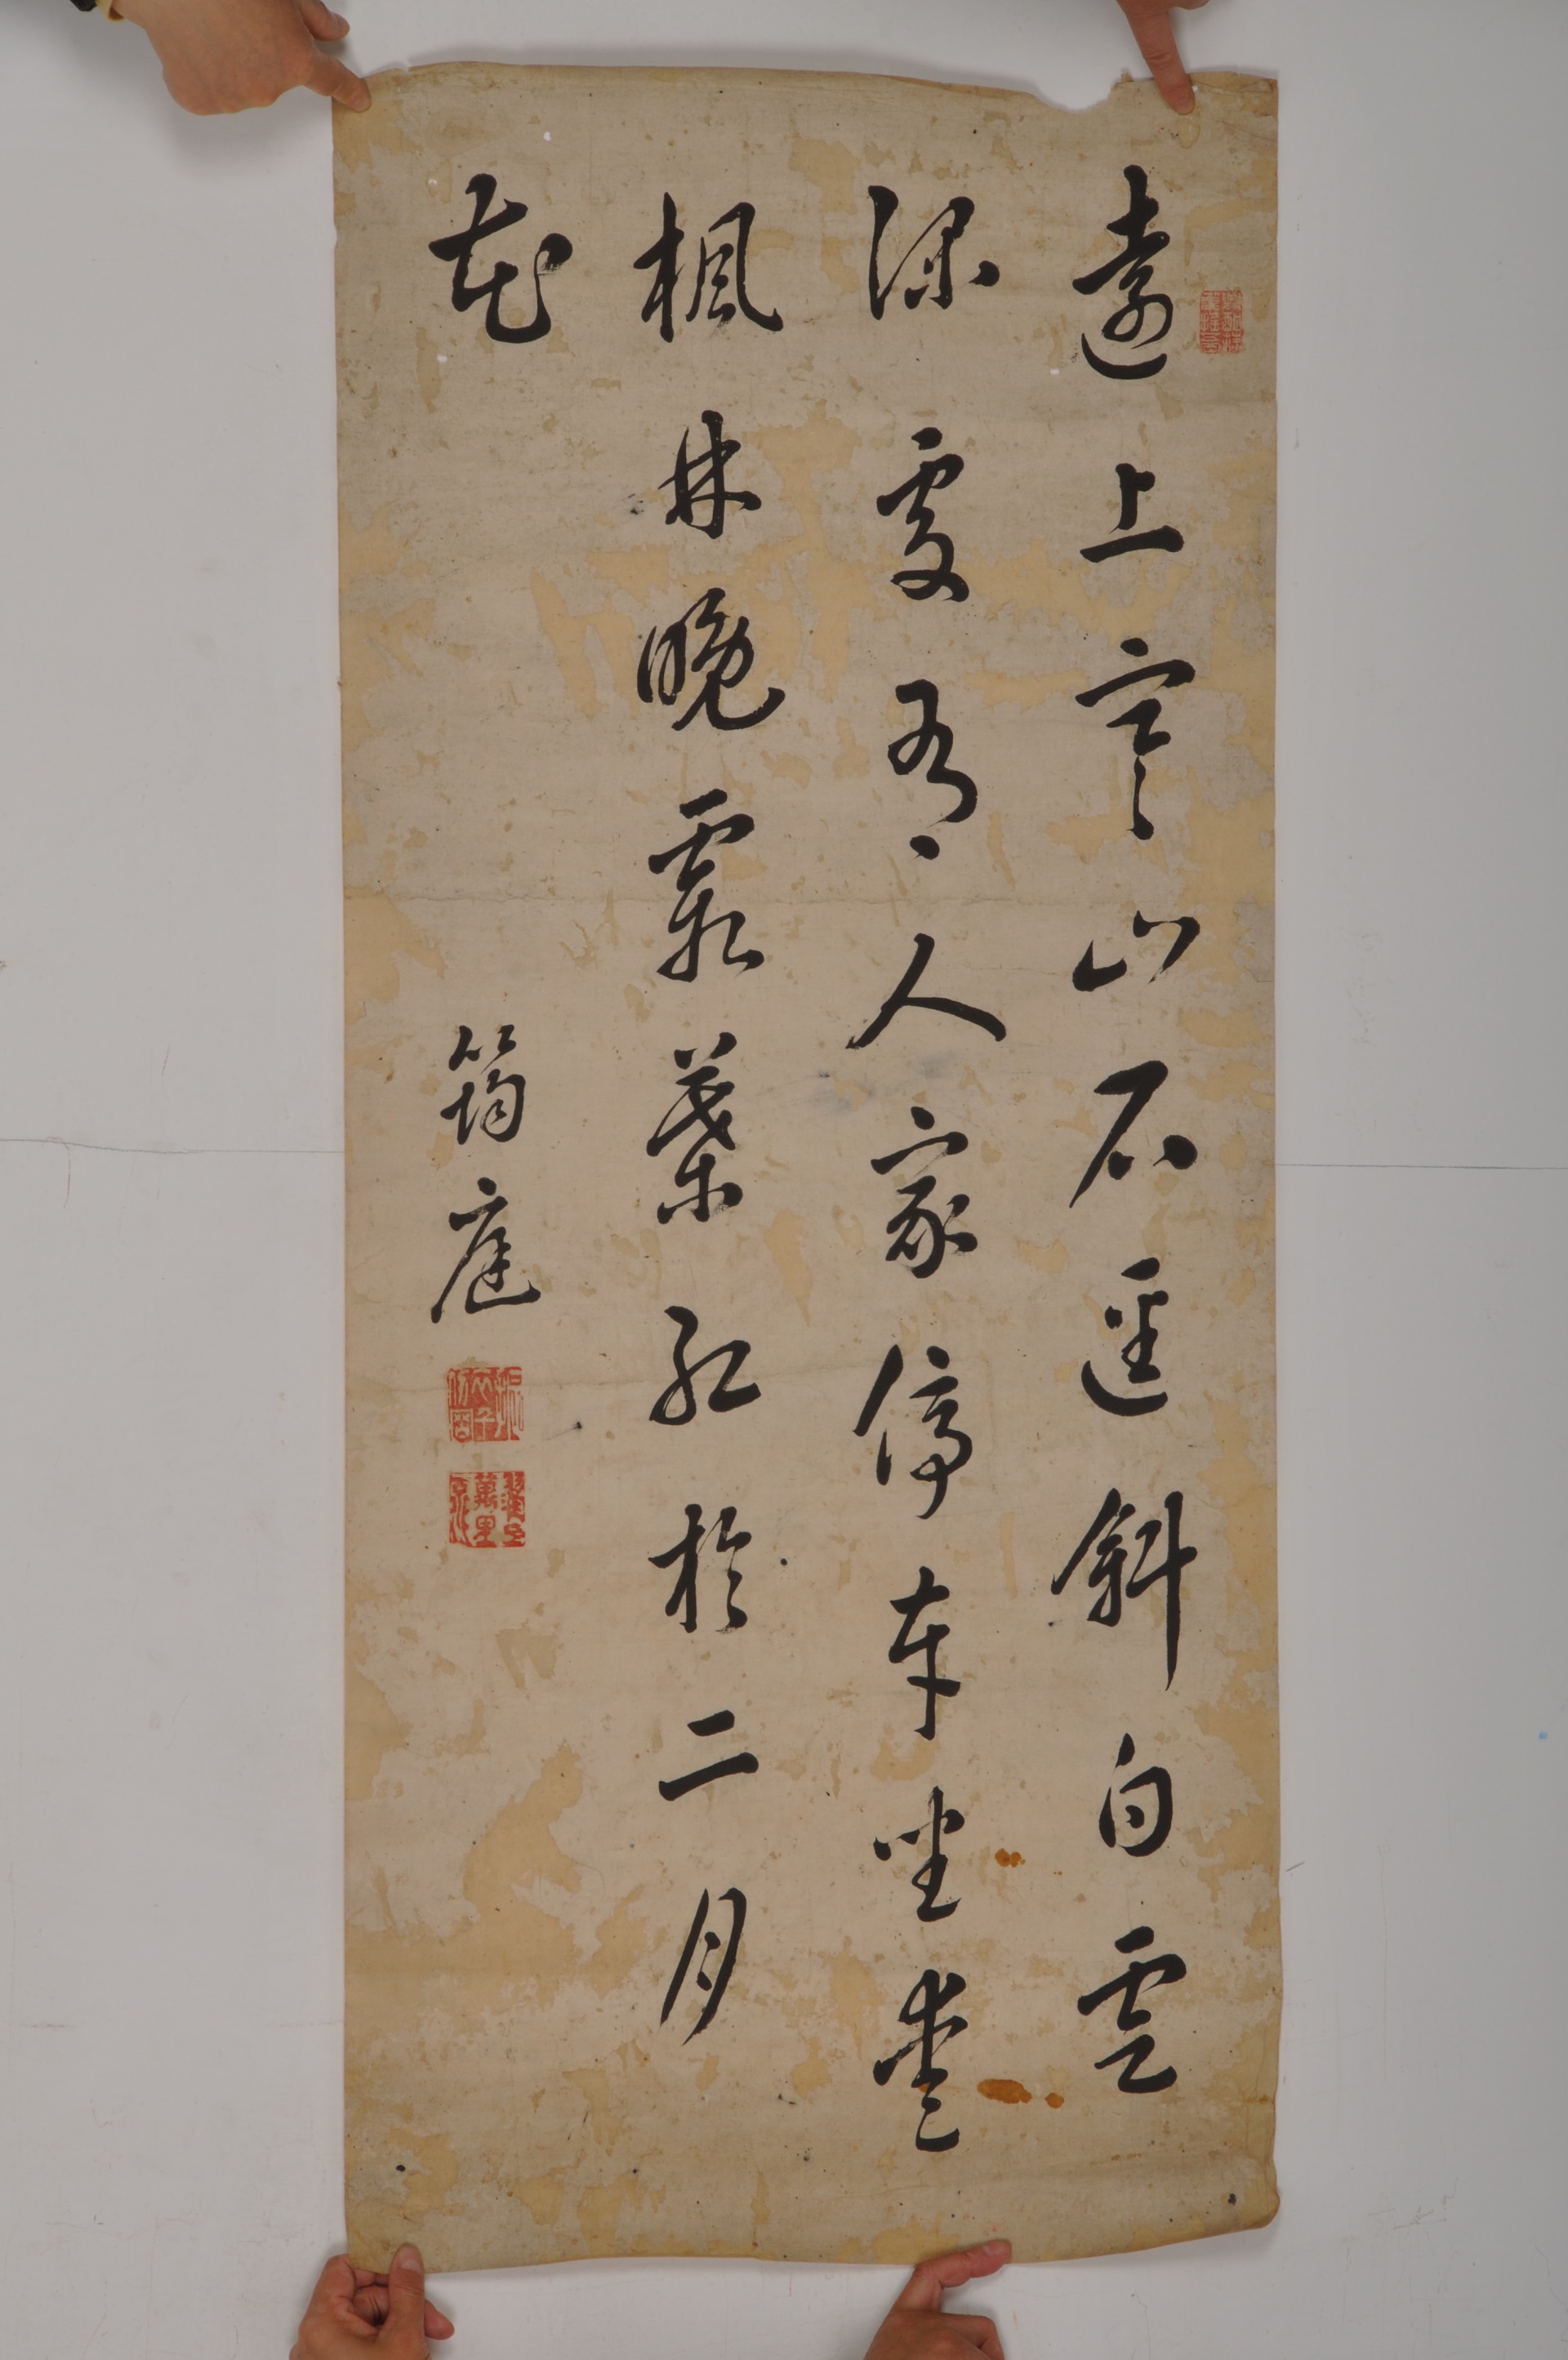 遠上寒山石逕斜白雲
深處有人家停車坐愛
楓林晚霜葉紅於二月
花
筠庭